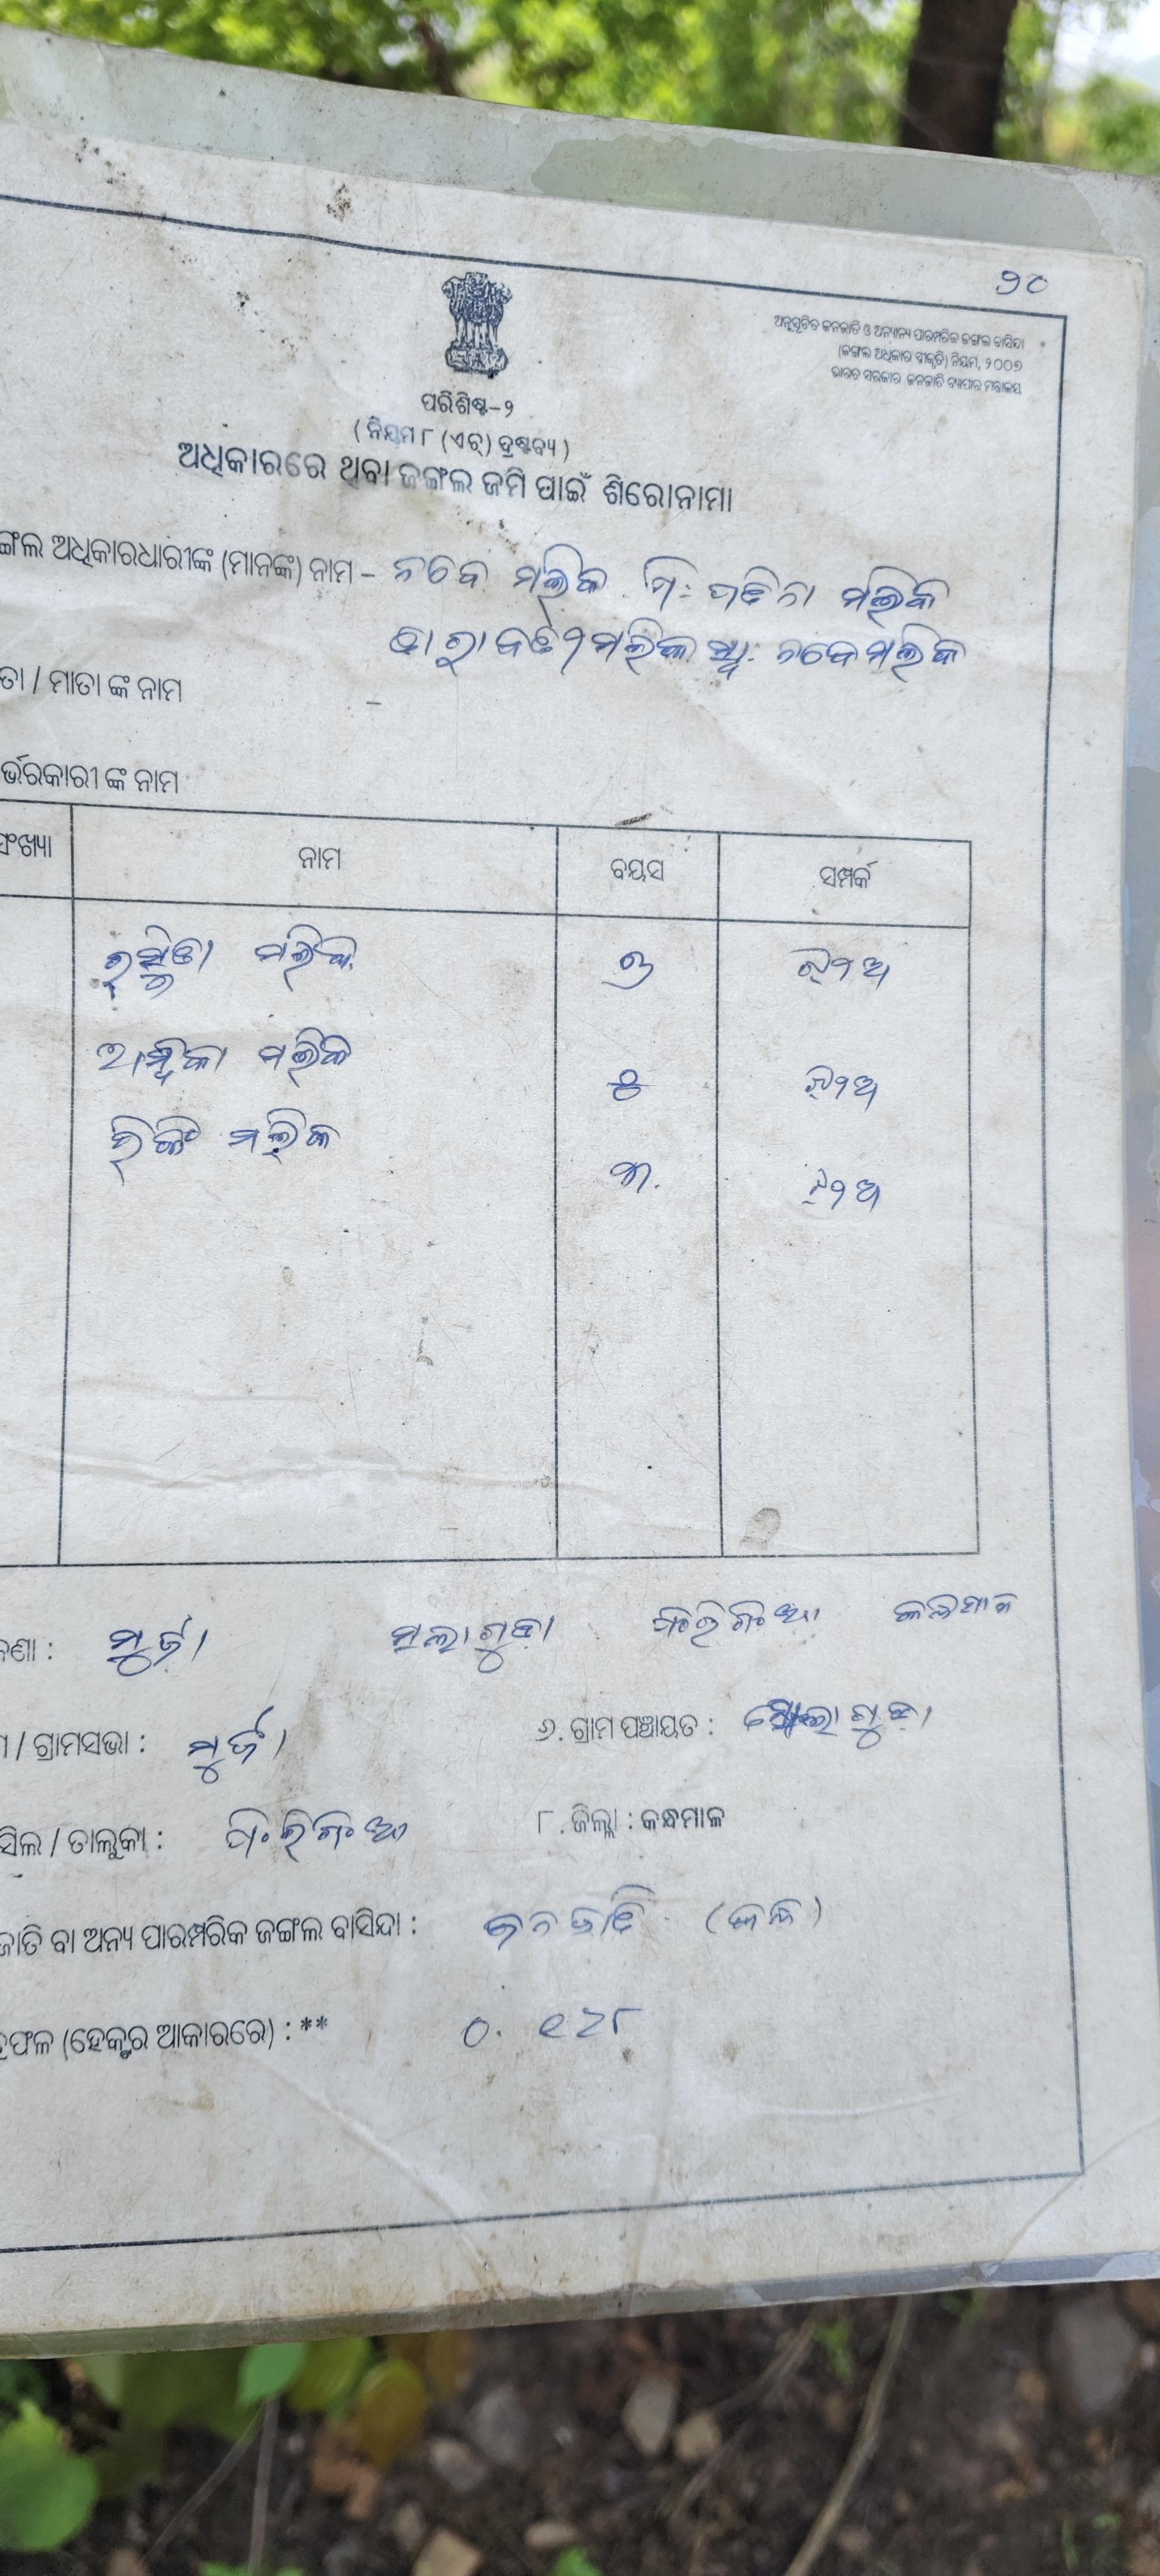 ୨୦
ଅନୁସୂଚିତ ଜନଜାତି ଓ ଅନ୍ୟାନ୍ୟ ପାରମ୍ପରିକ ଜଙ୍ଗଲ ବାସିନ୍ଦା
(ଜଙ୍ଗଲ ଅଧିକାର ସ୍ୱୀକୃତି) ନିୟମ, ୨୦୦୭
ଭାରତ ସରକାର ଜନଜାତି ବ୍ୟାପାର ମନ୍ତ୍ରାଳୟ
ପରିଶିଷ୍ଟ-୨
(ନିୟମ ୮ (ଏଚ୍) ଦ୍ରଷ୍ଟବ୍ୟ)
ଅଧିକାରରେ ଥିବା ଜଙ୍ଗଲ ଜମି ପାଇଁ ଶିରୋନାମା
ଙ୍ଗଲ ଅଧିକାରଧାରୀଙ୍କ (ମାନଙ୍କ) ନାମ - ମଲିକ ମଲିକ
ମଲିକ ମଲିକ
ତା / ମାତା ଙ୍କ ନାମ -
ର୍ଭରକାରୀ ଙ୍କ ନାମ
ସଂଖ୍ୟା ନାମ ବୟସ ସମ୍ପର୍କ
ମଲିକ ୬ ଝିଅ
ମଲିକ ୪ ଝିଅ
ରିଙ୍କି ମଲିକ ୩ ଝିଅ
କଣା : ମୁର୍ଜା ଫିରିଙ୍ଗିଆ କନ୍ଧମାଳ
ମ / ଗ୍ରାମସଭା : ମୁର୍ଜା ୬. ଗ୍ରାମ ପଞ୍ଚାୟତ :
ସିଲ / ତାଲୁକା : ଫିରିଙ୍ଗିଆ ୮. ଜିଲ୍ଲା : କନ୍ଧମାଳ
ଜାତି ବା ଅନ୍ୟ ପାରମ୍ପରିକ ଜଙ୍ଗଲ ବାସିନ୍ଦା : ଜନଜାତି (କନ୍ଧ)
ତ୍ରଫଳ (ହେକ୍ଟର ଆକାରରେ) : ** ୦.୧୨୮